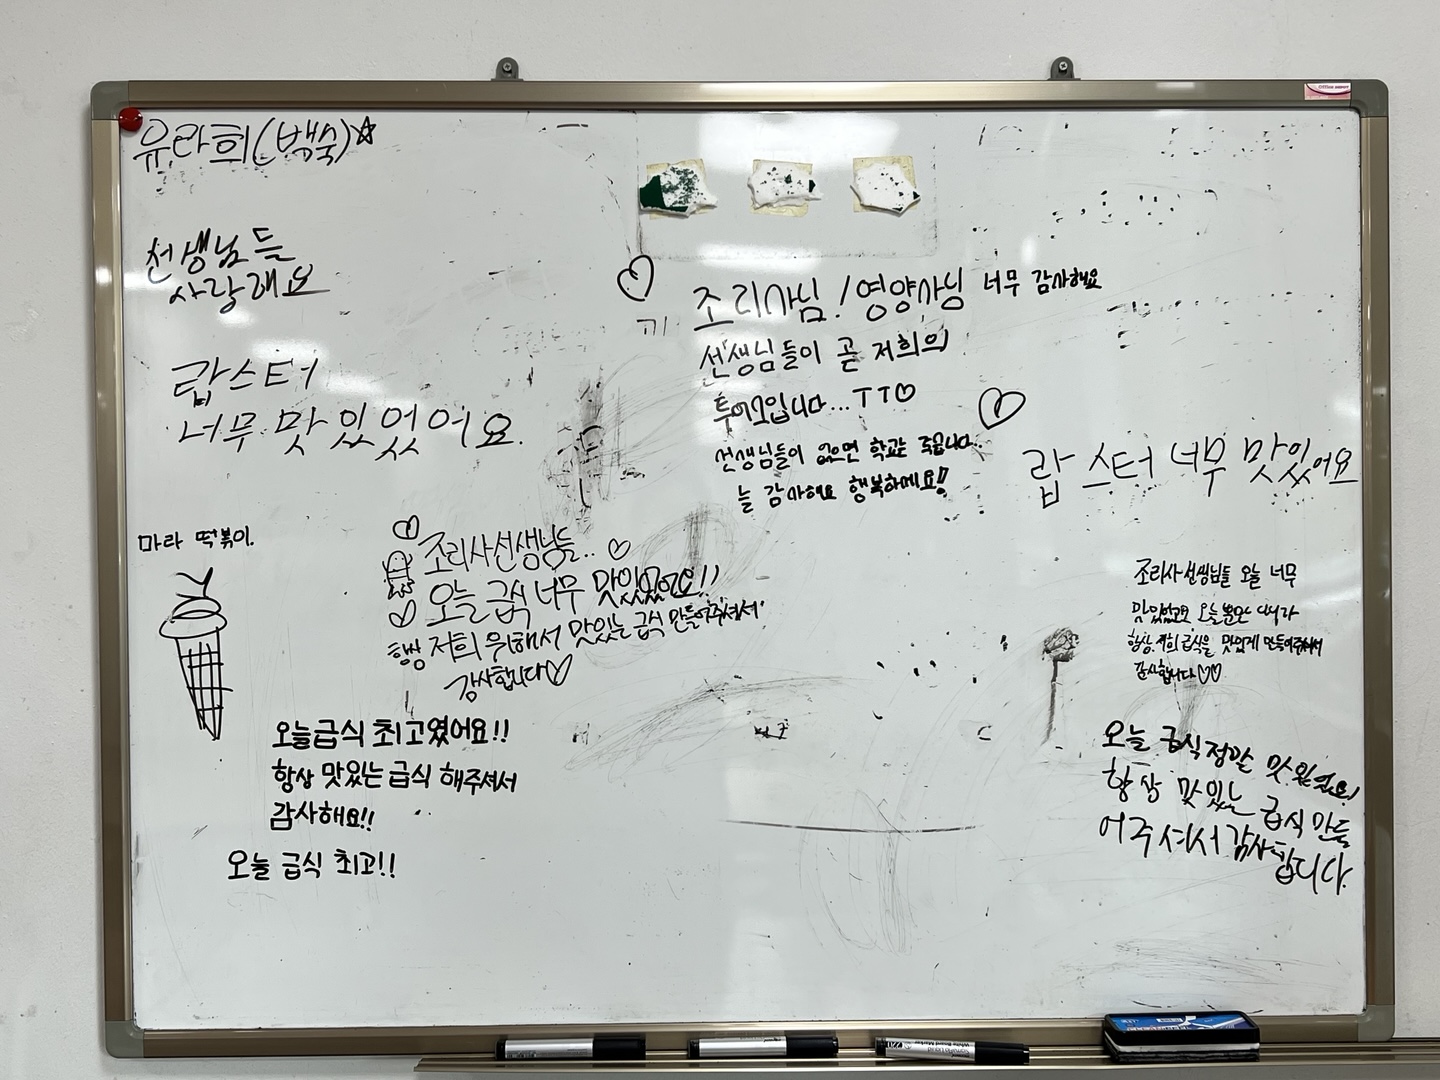 유라희(백숙)☆
선생님들
사랑해요
랍스터
너무 맛있었어요.
마라 떡볶이.
조리사님! 영양사님 너무 감사해요
선생님들이 곧 저희의
투어스입니다...ㅜㅜ♡
선생님들이 없으면 학교는 죽습니다..
늘 감사해요 행복하세요!!
랍스터 너무 맛있어요
조리사선생님들.. ♡
오늘 급식 너무 맛있었어요!!
항상 저희 위해서 맛있는 급식 만들어주셔서
감사합니다♡
오늘급식 최고였어요!!
항상 맛있는 급식 해주셔서
감사해요!!
오늘 급식 최고!!
조리사선생님들 오늘 너무
맛있었고 오늘뿐만 아니라
항상 저희 급식을 맛있게 만들어주셔서
감사합니다 ♡♡
오늘 급식 정말 맛있었어요!
항상 맛있는 급식 만들
어주셔서 감사합니다.